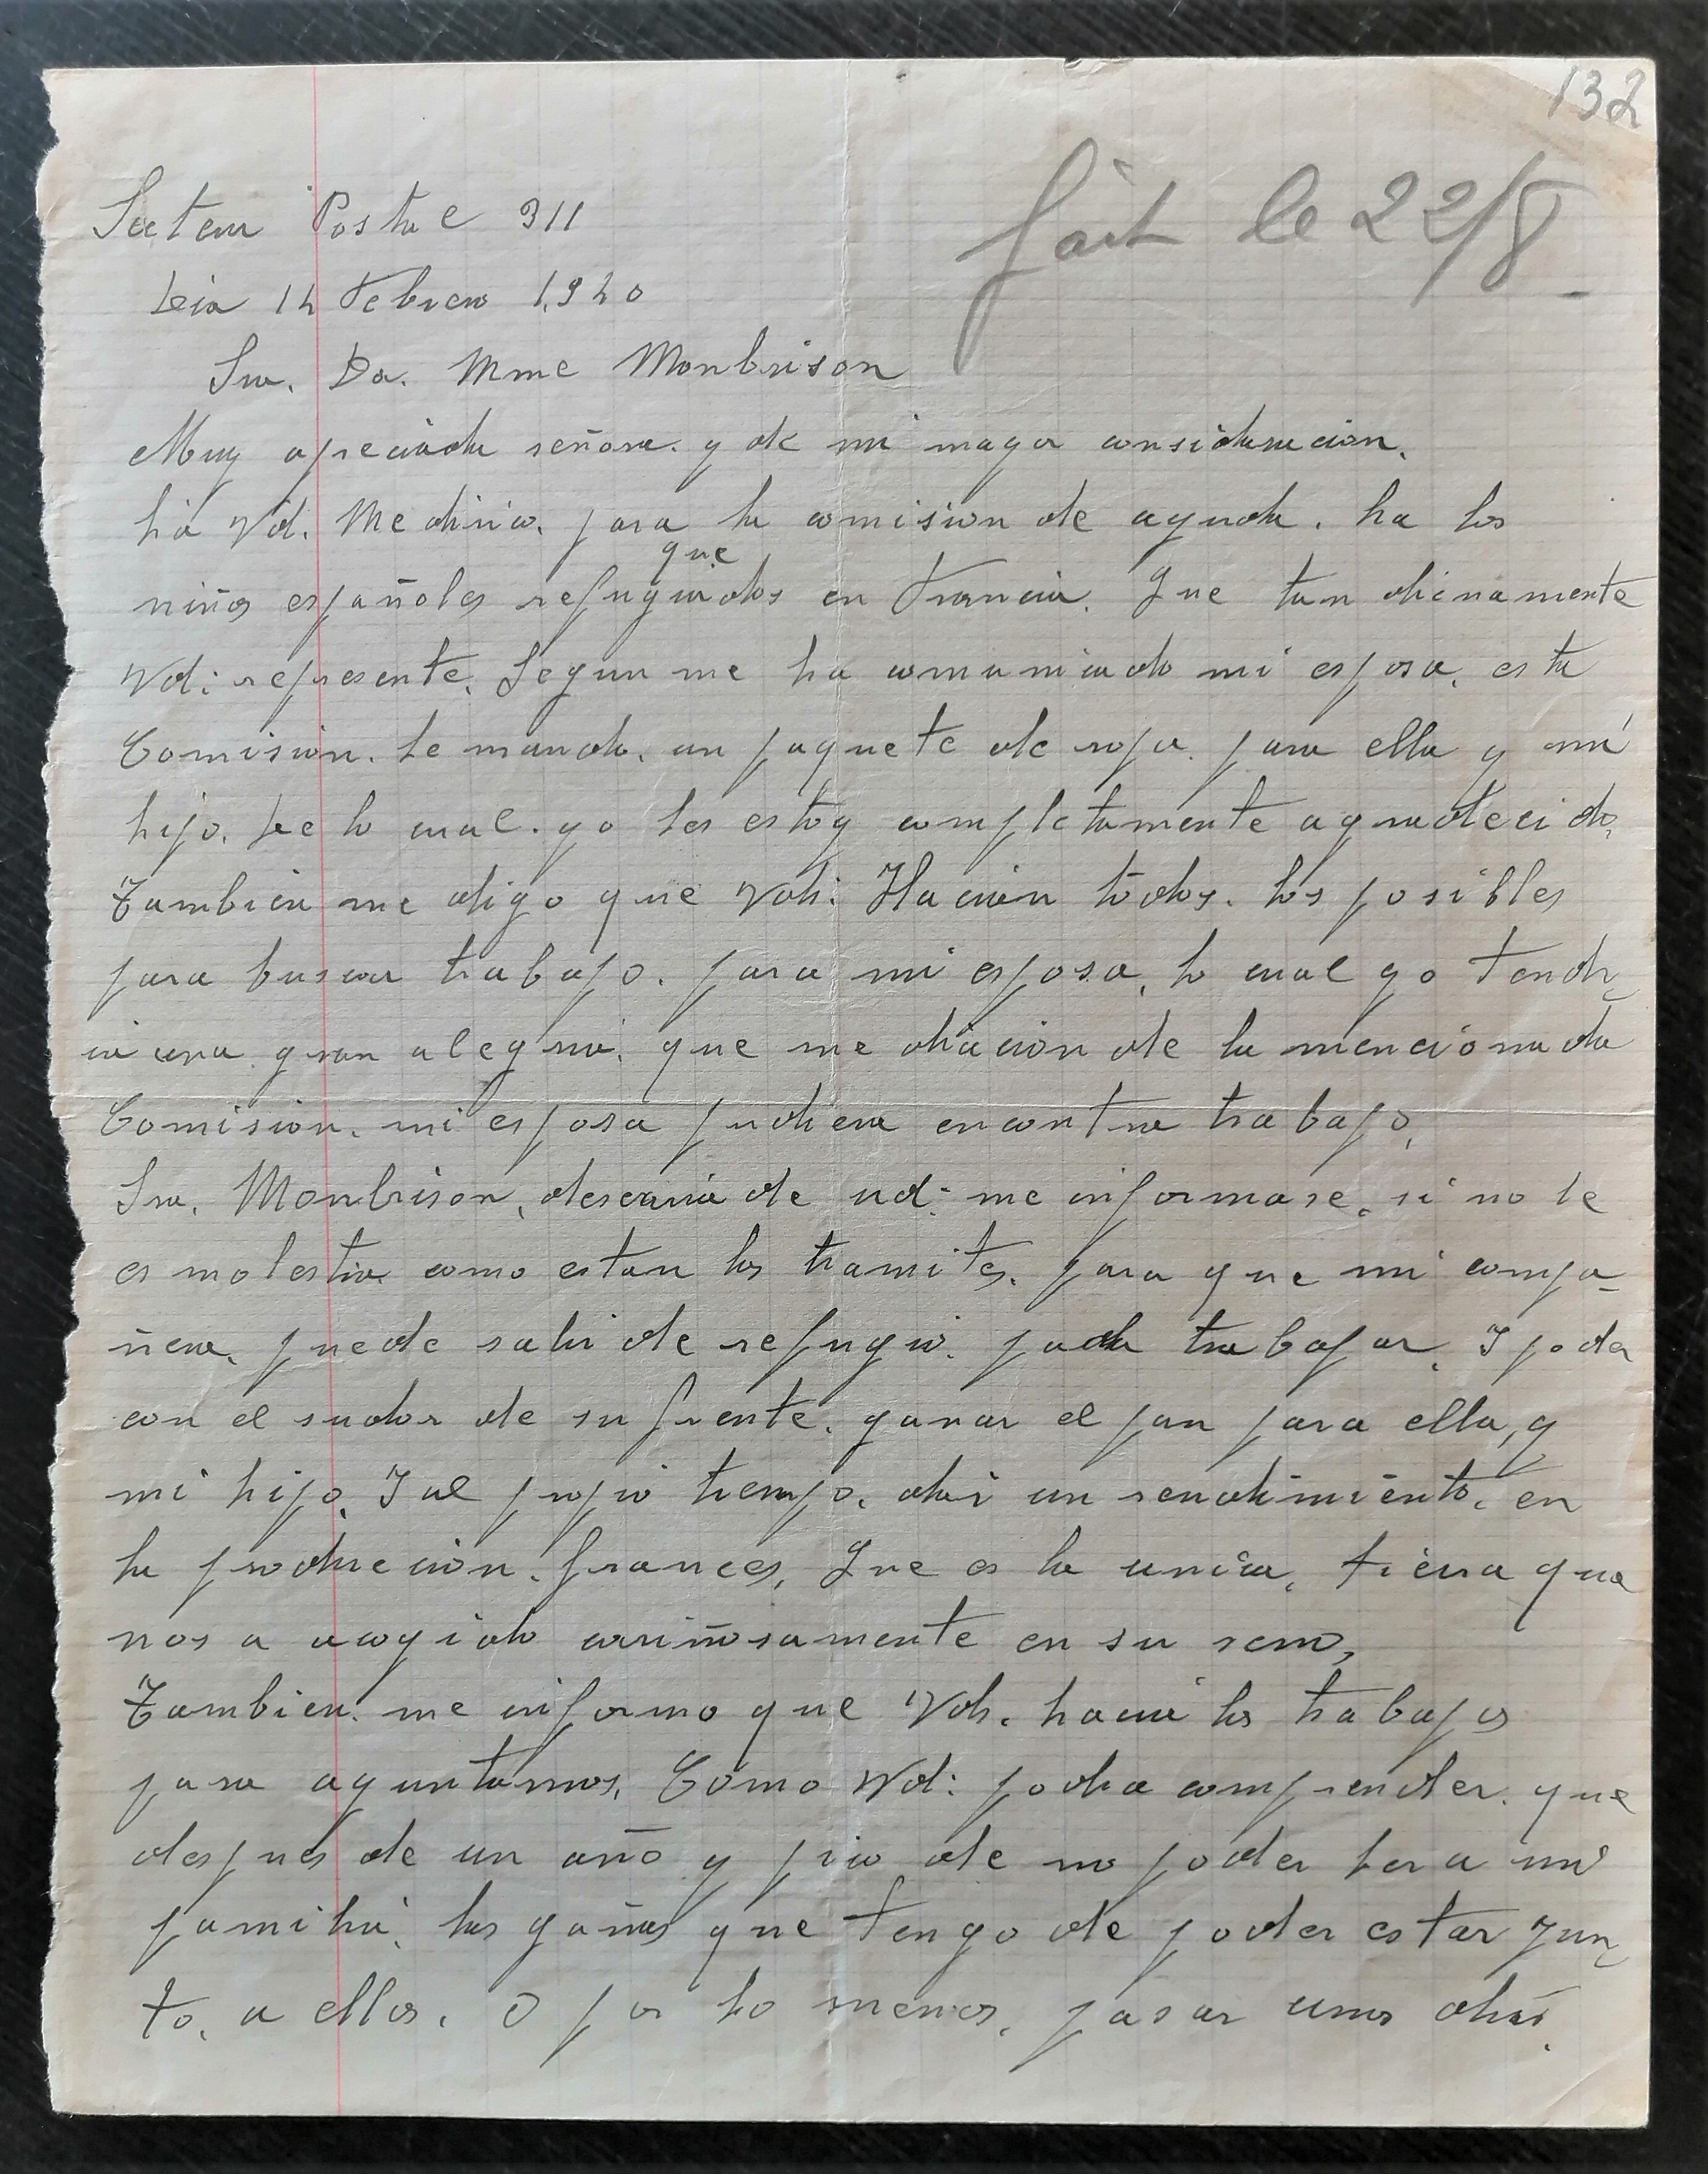 132
fait le 22/8
Secteur Postal 311
Dia 14 Febrero 1.940
Sra. Da. Mme Monbrison
Muy apreciada señora. y de mi mayor consideracion.
ha Vd. Me dirico. para la comision de ayuda. ha los
que
niños españoles refugiados en Francia. Que tan dicnamente
Vd: represente. Segun me ha comunicado mi esposa. esta
Comision. le mando. un paquete de ropa. para ella y mi
hijo. De lo cual. yo les estoy completamente agradecido.
Tambien me digo que Vds: Hacian todos. los posibles
para buscar trabajo. para mi esposa, lo cual yo tendr-
ia una gran alegria. que me diacion de la mencionada
Comision. mi esposa pudiera encontra trabajo.
Sra. Monbrison, desearia de ud: me informase. si no le
es molestia como estan los tramites. para que mi compa-
ñera. puede salir de refugio. pada trabajar. I poder
con el sudor de su frente. ganar el pan para ella, y
mi hijo. I al propio tiempo. dar un rendimiento. en
la producion. frances, Que es la unica, tierra que
nos a acogido cariñosamente en su seno.
Tambien. me informo que Vds. hacia los trabajos
para ayuntarnos. Como Vd: podra comprender. que
despues de un año y pico de no poder ber a mi
familia. las gañas que tengo de poder estar jun-
to. a ellos. O por lo menos. pasar unos dias.